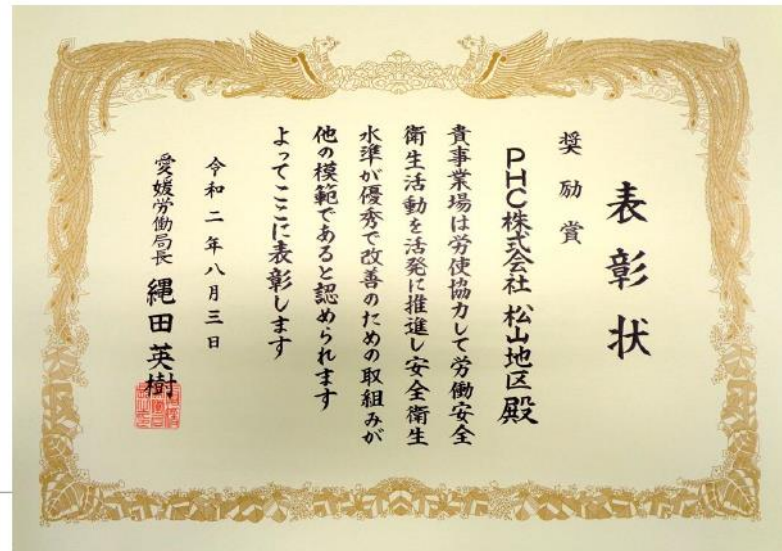 表彰状
奨励賞
PHC株式会社 松山地区殿
貴事業場は労使協力して労働安全
衛生活動を活発に推進し安全衛生
水準が優秀で改善のための取組みが
他の模範であると認められます
よってここに表彰します
令和二年八月三日
愛媛労働局長 縄田英樹